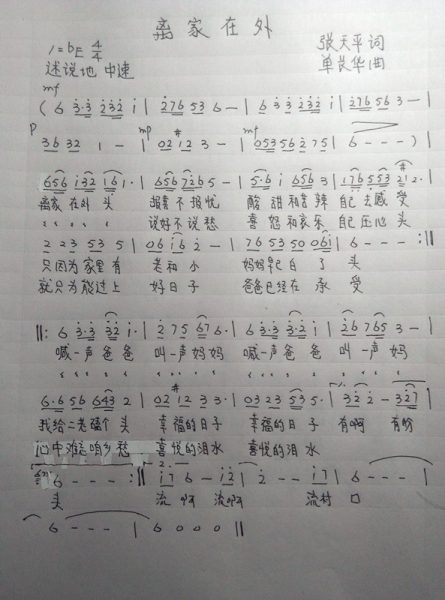 离家在外
1=bE 4/4 张天平词
述说地 中速 单长华曲
mf
( 6 3·3 232 i | 276 53 6 - | 6 3·3 232 i | 27656 3 - |
p mp mf
36 32 1 - | 02 12 3 - | 053562 75 | 6 - - - ) |
656 i32 i6i· | 656 7265 - | 5·6 i 656 3 | 176 553 212· |
离家在外 头 报喜不报忧 酸甜和苦辣 自己去感受
" " " " " 说好不说愁 喜怒和哀乐 自己压心头
2 23 53 5 | 06 i6 2 - | 76 53 50 06i | 6 - - - :||
只因为家里有 老和小 妈妈早已白了头
就只为能过上 好日子 爸爸已经在承受
||: 6 3·3 32 i· | 2 75 676· | 6 3·3 3·2 i | 26 765 3 - |
喊一声爸爸 叫一声妈妈 喊一声爸爸 叫一声妈妈
6·6 56 643 2 | 02 12 3 3· | 03 23 535· | 32 2 - 327 |
我给二老磕个头 幸福的日子 幸福的日子 有啊 有盼
心中难 咱乡愁 喜悦的泪水 喜悦的泪水
6 - - - :|| i7 6 - i2 | 2 - - i7 | 6 - - - |
头 流啊 流啊 流村 口
6 - - - | 6 0 0 0 ||